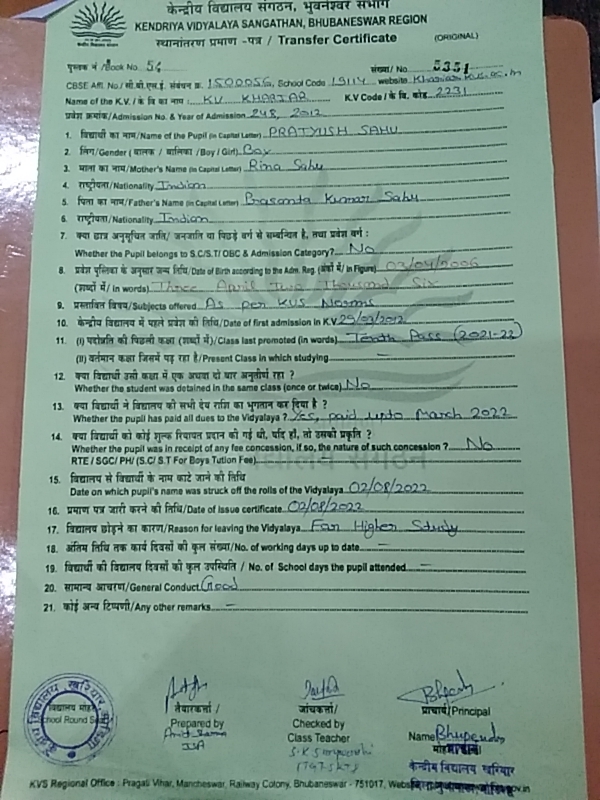 केन्द्रीय विद्यालय संगठन, भुवनेश्वर संभाग
KENDRIYA VIDYALAYA SANGATHAN, BHUBANESWAR REGION
स्थानांतरण प्रमाण -पत्र / Transfer Certificate (ORIGINAL)
पुस्तक नं /Book No. 54 संख्या/ No 5351
CBSE Affl. No./सी.बी.एस.ई. संबंधन क्र. 1500056, School Code 19114 website
Name of the K.V. / के वि का नाम : KV KHARIAR K.V Code / के वि. कोड 2231
प्रवेश क्रमांक/Admission No. & Year of Admission 248, 2012
1. विद्यार्थी का नाम/Name of the Pupil (in Capital Letter) PRATYUSH SAHU
2. लिंग/Gender (बालक / बालिका /Boy / Girl) Boy
3. माता का नाम/Mother's Name (in Capital Letter) Rina Sahu
4. राष्ट्रीयता/Nationality Indian
5. पिता का नाम/Father's Name (in Capital Letter) Prasanta Kumar Sahu
6. राष्ट्रीयता/Nationality Indian
7. क्या छात्र अनुसूचित जाति/ जनजाति या पिछड़े वर्ग से सम्बन्धित है, तथा प्रवेश वर्ग :
Whether the Pupil belongs to S.C/S.T/ OBC & Admission Category? No
8. प्रवेश पुस्तिका के अनुसार जन्म तिथि/Date of Birth according to the Adm. Reg. (अंकों में/ in Figure) 03/04/2006
(शब्दों में/ in words) Three April Two Thousand Six
9. प्रस्तावित विषय/Subjects offered As per KVS Norms
10. केन्द्रीय विद्यालय में पहले प्रवेश की तिथि/Date of first admission in K.V 29/03/2012
11. (i) पदोन्नति की पिछली कक्षा (शब्दों में)/Class last promoted (in words) Tenth Pass (2021-22)
(II) वर्तमान कक्षा जिसमें पढ़ रहा है/Present Class in which studying —
12. क्या विद्यार्थी उसी कक्षा में एक अथवा दो बार अनुतीर्ण रहा ?
Whether the student was detained in the same class (once or twice) No
13. क्या विद्यार्थी ने विद्यालय को सभी देय राशि का भुगतान कर दिया है ?
Whether the pupil has paid all dues to the Vidyalaya ? Yes, paid upto March 2022
14. क्या विद्यार्थी को कोई शुल्क रियायत प्रदान की गई थी, यदि हाँ, तो उसकी प्रकृति ?
Whether the pupil was in receipt of any fee concession, if so, the nature of such concession ? No
RTE / SGC/ PH/ (S.C/ S.T For Boys Tution Fee)
15. विद्यालय से विद्यार्थी के नाम काटे जाने की तिथि
Date on which pupil's name was struck off the rolls of the Vidyalaya 02/08/2022
16. प्रमाण पत्र जारी करने की तिथि/Date of issue certificate 02/08/2022
17. विद्यालय छोड़ने का कारण/Reason for leaving the Vidyalaya For Higher Study
18. अंतिम तिथि तक कार्य दिवसों की कुल संख्या/No. of working days up to date —
19. विद्यार्थी की विद्यालय दिवसों की कुल उपस्थिति / No. of School days the pupil attended —
20. सामान्य आचरण/General Conduct Good
21. कोई अन्य टिप्पणी/Any other remarks —
विद्यालय मोहर
School Round Seal
तैयारकर्त्ता /
Prepared by
JSA
जांचकर्त्ता/
Checked by
Class Teacher
प्राचार्य/Principal
Name Bhupendra
केन्द्रीय विद्यालय खरियार
KVS Regional Office : Pragati Vihar, Mancheswar, Railway Colony, Bhubaneswar - 751017,